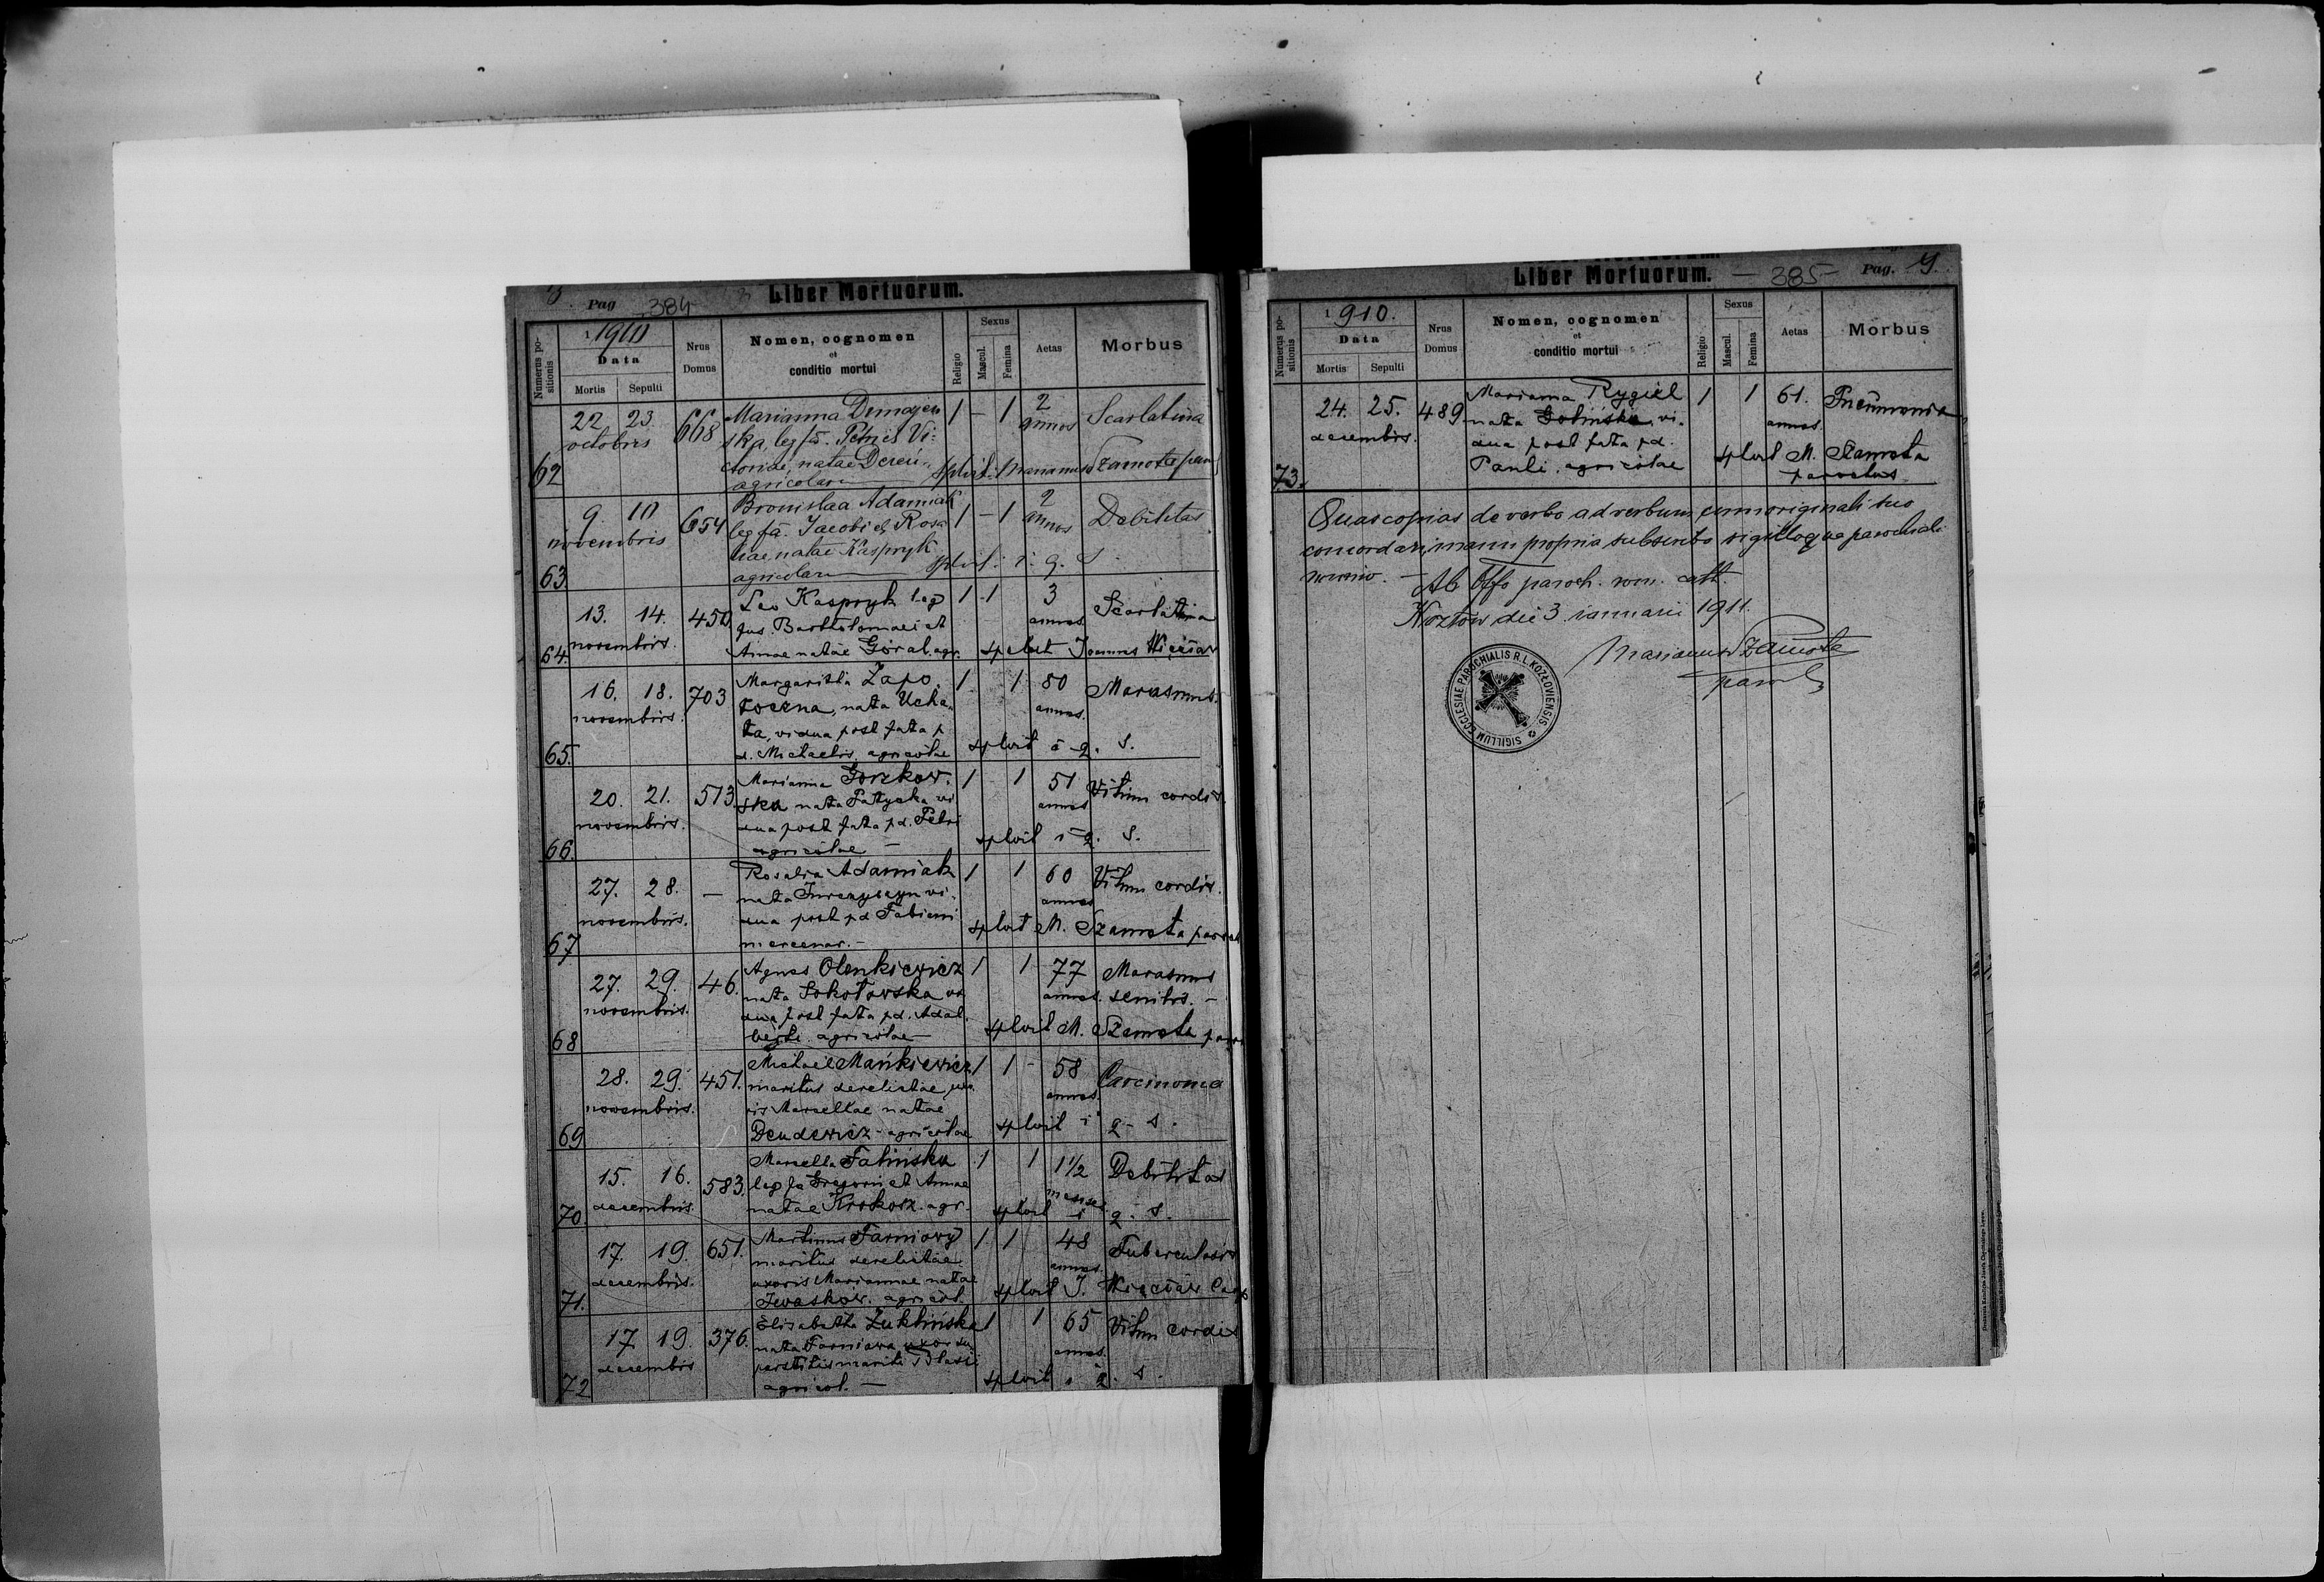 Pag 384 Liber Mortuorum.
Numerus positionis
1910
Data
Mortis Sepulti
Nrus Domus
Nomen, cognomen
et
conditio mortui
Religio
Sexus
Mascul. Femina
Aetas
Morbus
22 23 668 Marianna 1 - 1 2 Scarlatina
octobris ska, leg fa. Petri et Vi- annos
ctoriae, natae
62 agricolarum Marianus Szamota
9 10 654 Bronislaa Adamiak 1 - 1 2 Debilitas
novembris leg fa. Jacobi et Rosa annos
liae natae Kaspryk
63 agricolarum i. q. s.
13. 14. 450 Leo Kaspryk leg 1 1 3 Scarlatina
novembris. fus. Bartholomaei et annos
64. Annae natae Goral. agr. Joannes
16. 18. 703 Margarita Zapo- 1 1 80 Marasmus.
novembris. toczna, nata Ucha- annos.
ta, vidua post fata p
65. d. Michaelis agricolae splvit i q. s.
20. 21. 513. Marianna Gorzkow- 1 1 51 Vitium cordis.
novembris. ska nata Patycka vi annos
dua post fata pd. Petri
66. agricolae — splvit i q. s.
27. 28. — Rosalia Adamiak 1 1 60 Vitium cordis.
novembris. nata vi- annos
dua post pd Fabiani
67 mercenar. — splvit M. Szamota
27. 29. 46. Agnes Olenkiewicz 1 1 77 Marasmus
novembris. nata Sokołowska vi annos. senilis. —
dua post fata pd. Adal
68 berti agricolae — splvit M. Szamota
28. 29. 451. Michael Mańkiewicz 1 1 - 58 Carcinoma
novembris. maritus derelictae uxo annos.
ris Marcellae natae
69 Deudewicz - agricolae splvit i q. s.
15. 16. 583. Marcella Falińska 1 1 1 1/2 Debilitas
decembris. leg fa Gregorii et Annae menses
70 natae Krokosz. agr. splvit i q. s.
17. 19. 651. Martinus Farniowy 1 1 48 Tuberculosis
decembris. maritus derelictae annos.
uxoris Mariannae natae
71. Iwaskow. agricol. splvit J.
17 19. 376. Elisabetha Żuklińska 1 1 65 Vitium cordis
decembris nata Farniowa uxor su annos.
perstitis mariti Blasii
72 agricol. — splvit i q. s.
Liber Mortuorum. — 385 — Pag. 9.
Numerus positionis
1910.
Data
Mortis Sepulti
Nrus Domus
Nomen, cognomen
et
conditio mortui
Religio
Sexus
Mascul. Femina
Aetas
Morbus
24. 25. 489 Marianna Rygiel 1 1 61. Pneumonia
decembris. nata Golińska, vi- annos.
dua post fata pd.
73. Pauli. agricolae splvit M. Szamota
parochus.
Quas copias de verbo ad verbum cum originali suo
concordari, manu propria subscribo sigilloque parochiali
munio. —
Ab Offo paroch. rom. cath.
Kozłów die 3. ianuarii 1911.
Marianus Szamota
SIGILLUM ECCLESIAE PAROCHIALIS R.L. KOZŁOVIENSIS